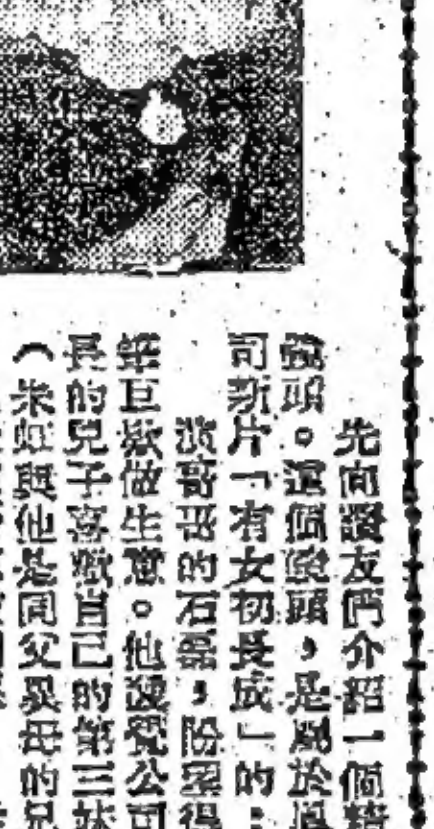 先向讀友們介紹一個精
鏡頭。這個鏡頭，是屬於
司新片「有女初長成」的：
演哥哥的石磊，
巨款做生意。他發覺公司
長的兒子喜歡自己的第三妹
（朱虹與他是同父異母的兄